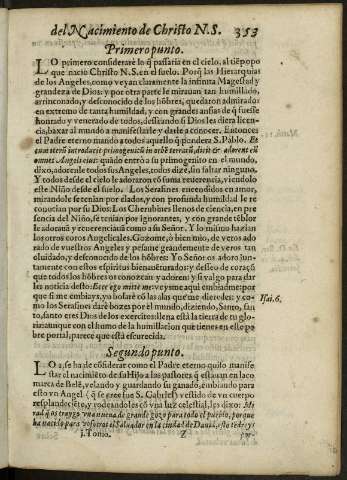 del Nacimiento de Christo N.S. 353
Primero punto.
LO primero considerarè lo q̃ passaria en el cielo, al tiẽpo
que nacio Christo N.S. en el suelo. Porq̃ las Hierarquias
de los Angeles, como veyan claramente la infinita Magestad y
grandeza de Dios: y por otra parte le mirauan tan humillado,
arrinconado, y desconocido de los hõbres, quedaron admirados
en extremo de tanta humildad, y con grandes ansias de q̃ fuesse
honrado y venerado de todos, desseando si Dios les diera licen-
cia, baxar al mundo a manifestarle y darle a conocer. Entonces
el Padre eterno mando a todos aquello q̃ pondera S. Pablo. Et
cum iterũ introducit primogenitũ in orbẽ terræ, dicit & adorent eũ
omnes Angeli eius: quãdo entrò a su primogenito en el mundo,
dixo, adorenle todos sus Angeles, todos dize, sin faltar ninguno.
Y todos desde el cielo le adoraron cõ suma reuerencia, viendolo
este Niño desde el suelo. Los Serafines encendidos en amor,
mirandole se tenian por elados, y con profunda humildad le re
conocian por su Dios: Los Cherubines llenos de ciencia, en pre
sencia del Niño, se tenian por ignorantes, y con grande tẽblor
le adorauã y reuerenciauã como a su Señor. Y lo mismo hazian
los otros coros Angelicales. Gozome, ò bien mio, de veros ado
rado de vuestros Angeles y pesame grandemente de veros tan
oluidado, y desconocido de los hõbres: Yo Señor os adoro jun-
tamente con estos espiritus bienauẽturados: y desseo de coraçõ
que todos los hõbres os conozcan y adoren: y si valgo para dar
les noticia desto: Ecce ego mitte me: veysme aqui embiadme: por
que si me embiays, ya bolarè cõ las alas que me dieredes: y co-
mo los Serafines darè bozes por el mundo, diziendo, Santo, san
to, santo eres Dios de los exercitos: llena està la tierra de tu glo-
ria: aunque con el humo de la humillacion que tienes en este po
bre portal, parece que està escurecida.
Isai. 6.
Segundo punto.
LO 2. se ha de considerar como el Padre eterno quiso manife-
star el nacimiẽto de su Hijo a las pastores q̃ estauan en la co
marca de Belẽ, velando y guardando su ganado, embiando para
esto vn Angel (q̃ se cree fue S. Gabriel) vestido de vn cuerpo
resplandeciẽte, y rodeandoles cõ vna luz celestial, les dixo: Mi-
rad q̃ os traygo vna nueua de grande gozo para todo el pueblo, porque
ha nacido para vosotros el Saluador en la ciudad de Dauid,
1. Tomo. Z